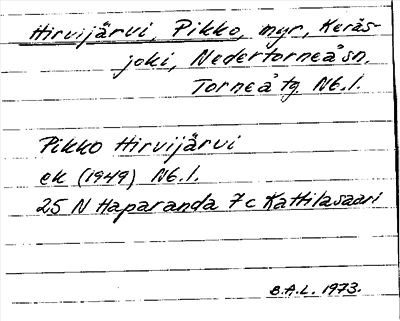 Hirvijärvi, Pikko, myr, Keräs-
joki, Nedertorneå sn,
Torneå tg. Nb. l.
Pikko Hirvijärvi
ek (1949) Nb. l.
25 N Haparanda 7c Kattilasaari
B.A.L. 1973.